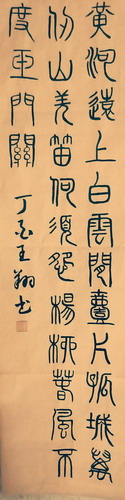 黃河遠上白雲間壹片孤城萬
仞山羌笛何須怨楊柳春風不
度玉門關
丁酉王翔书